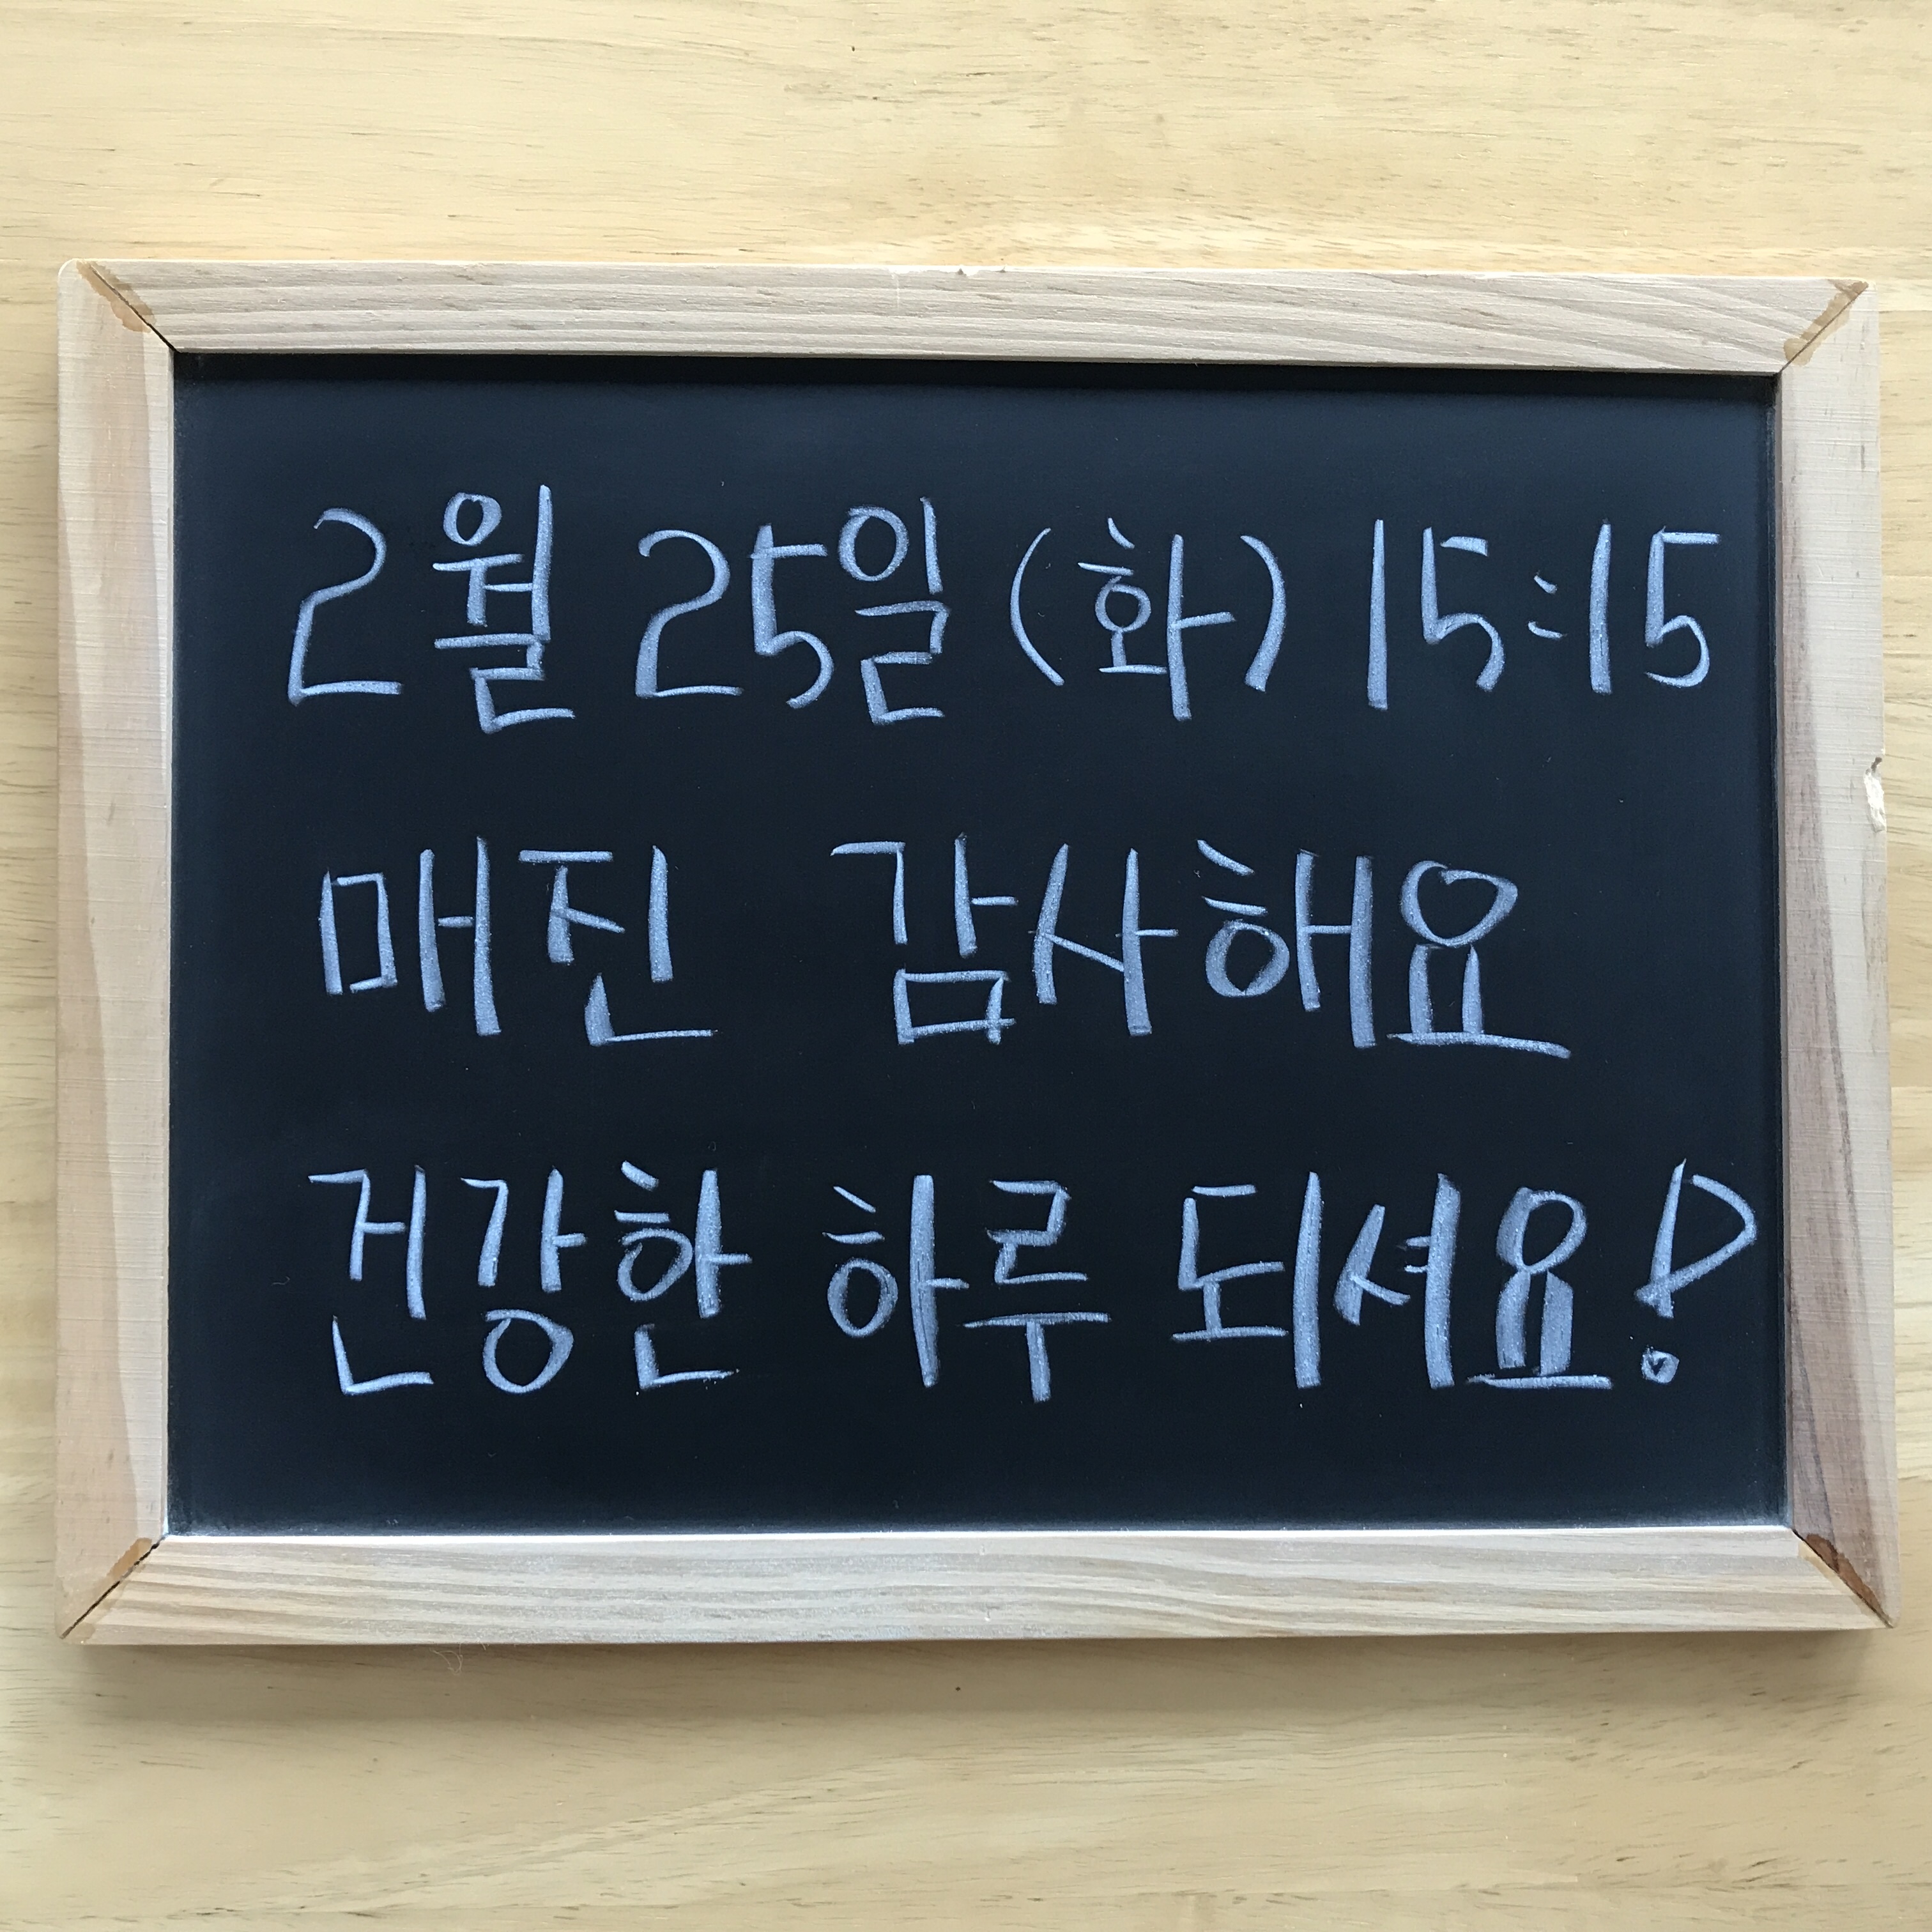 2월 25일 (화) 15:15
매진 감사해요
건강한 하루 되셔요!